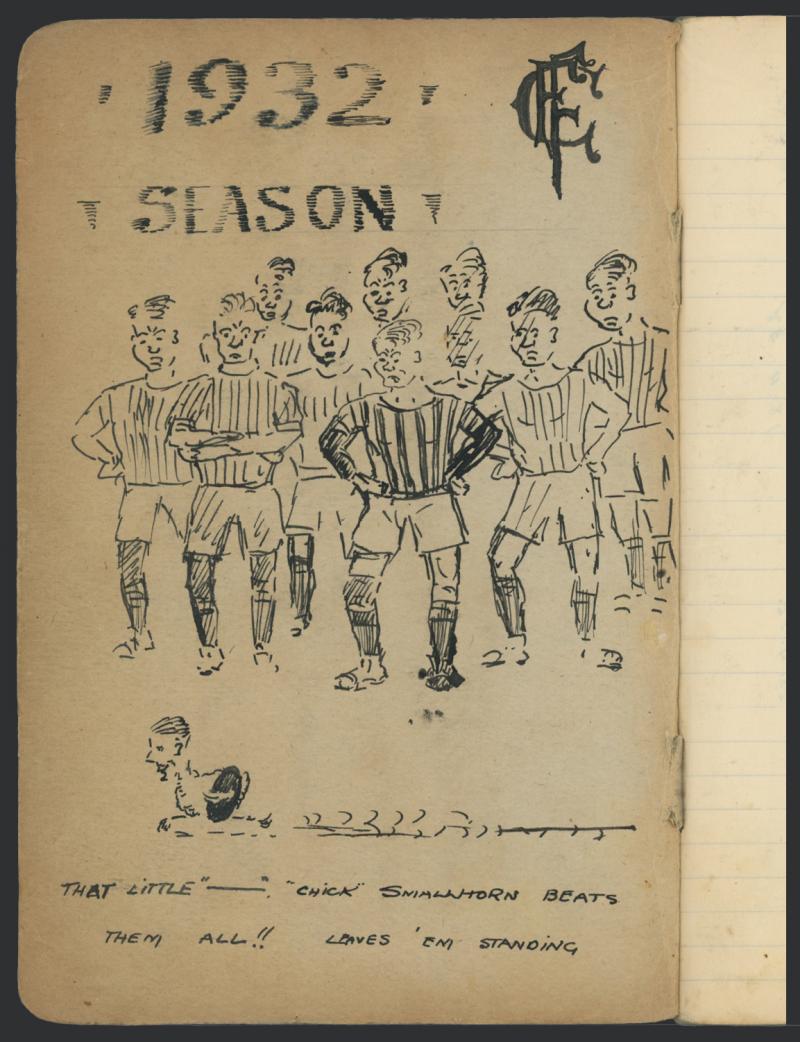 1932
FFC
SEASON
THAT LITTLE "——". "CHICK" SMALLHORN BEATS
THEM ALL!! LEAVES 'EM STANDING